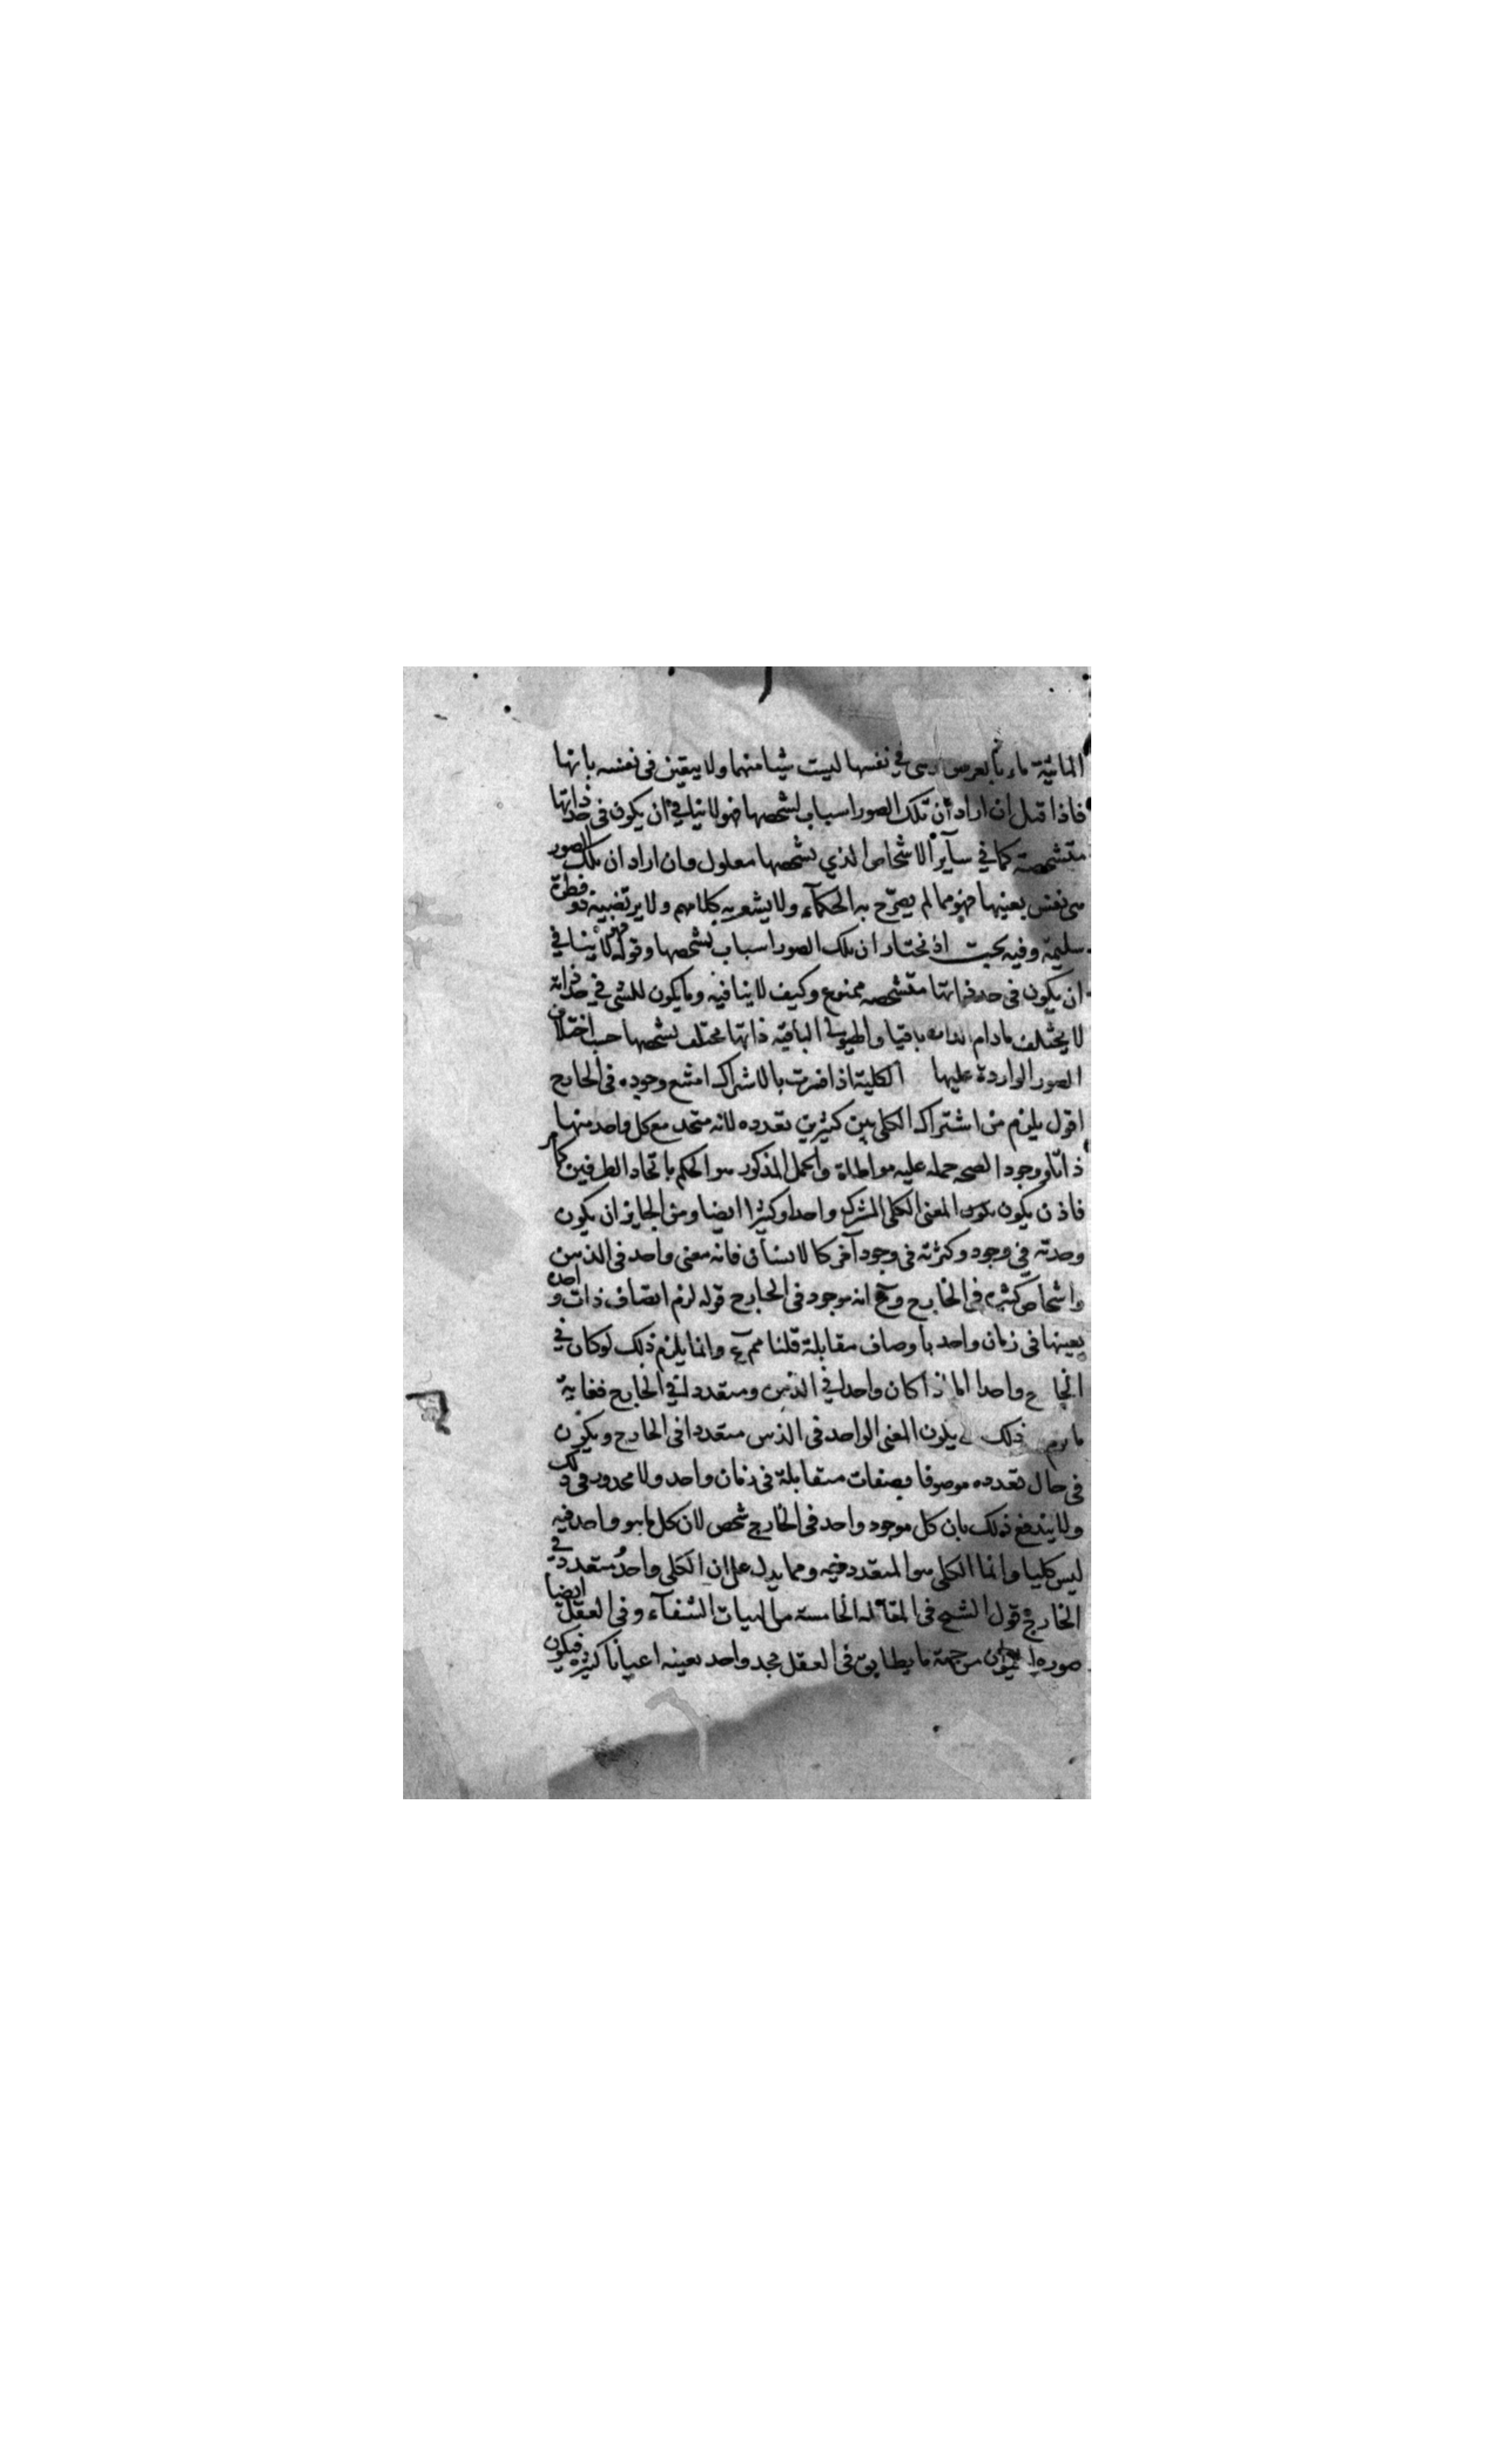 المائية ثم يعرض وهى في نفسها ليست شيئا منهما ولا يتعين في نفسه بانها
فاذا قيل ان اراد أن تلك الصور اسباب لتشخصها فهو لا ينافي ان يكون فى حد ذاتها
متشخصة كما في سآير الاشخاص الذي تشخصها معلول وان اراد ان تلك الصور
هي نفس بعينها فهو مما لم يصرّح به الحكمآء ولا يشعر به كلامهم ولا يرتضيه ذو فطرة
سليمة وفيه بحث اذ نختار ان تلك الصور اسباب لتشخصها وقوله فهو لا ينافي
ان يكون في حد ذاتها متشخصه ممنوع وكيف لا ينافيه وما يكون للشئ في حد ذاته
لا يختلف مادام الذات باقيا والهيولى الباقية ذاتها مختلف تشخصها حسب اختلاف
الصور الواردة عليها الكلية اذا فسرت بالاشتراك امتنع وجوده فى الخارج
اقول يلزم من اشتراك الكلي بين كثيرين تعدده لانه متحد مع كل واحد منها
ذاتا ووجودا لصحه حمله عليه مواطاة والحمل المذكور هو الحكم باتحاد الطرفين كما مر
فاذن يكون المعنى الكلى المشترك واحدا وكثيرا ايضا ومن الجايز ان يكون
وحدته في وجود وكثرته في وجود آخر كالانسان فانه معنى واحد فى الذهن
واشخاص كثيره فى الخارج وح انه موجود فى الخارج قوله لزم اتصاف ذات واحده
بعينها في زمان واحد باوصاف متقابلة قلنا مم وانما يلزم ذلك لو كان في
الخارج واحدا اما اذا كان واحدا في الذهن ومتعددا في الخارج فغاية
ما يلزم ذلك ان يكون المعنى الواحد في الذهن متعددا فى الخارج ويكون
فى حال تعدده موصوفا بصفات متقابلة فى زمان واحد ولا محذور فى ذلك
ولا يندفع ذلك بان كل موجود واحد فى الخارج شخص لان كل ما هو واحد فيه
ليس كليا وانما الكلى هو المتعدد فيه ومما يدل على ان الكلي واحد متعدد في
الخارج قول الشيخ فى المقاله الخامسة من الهيات الشفآء وفى العقل ايضا
صورة الحيوان من جهة ما يطابق فى العقل بحد واحد بعينه اعيانا كثيرة فيكون